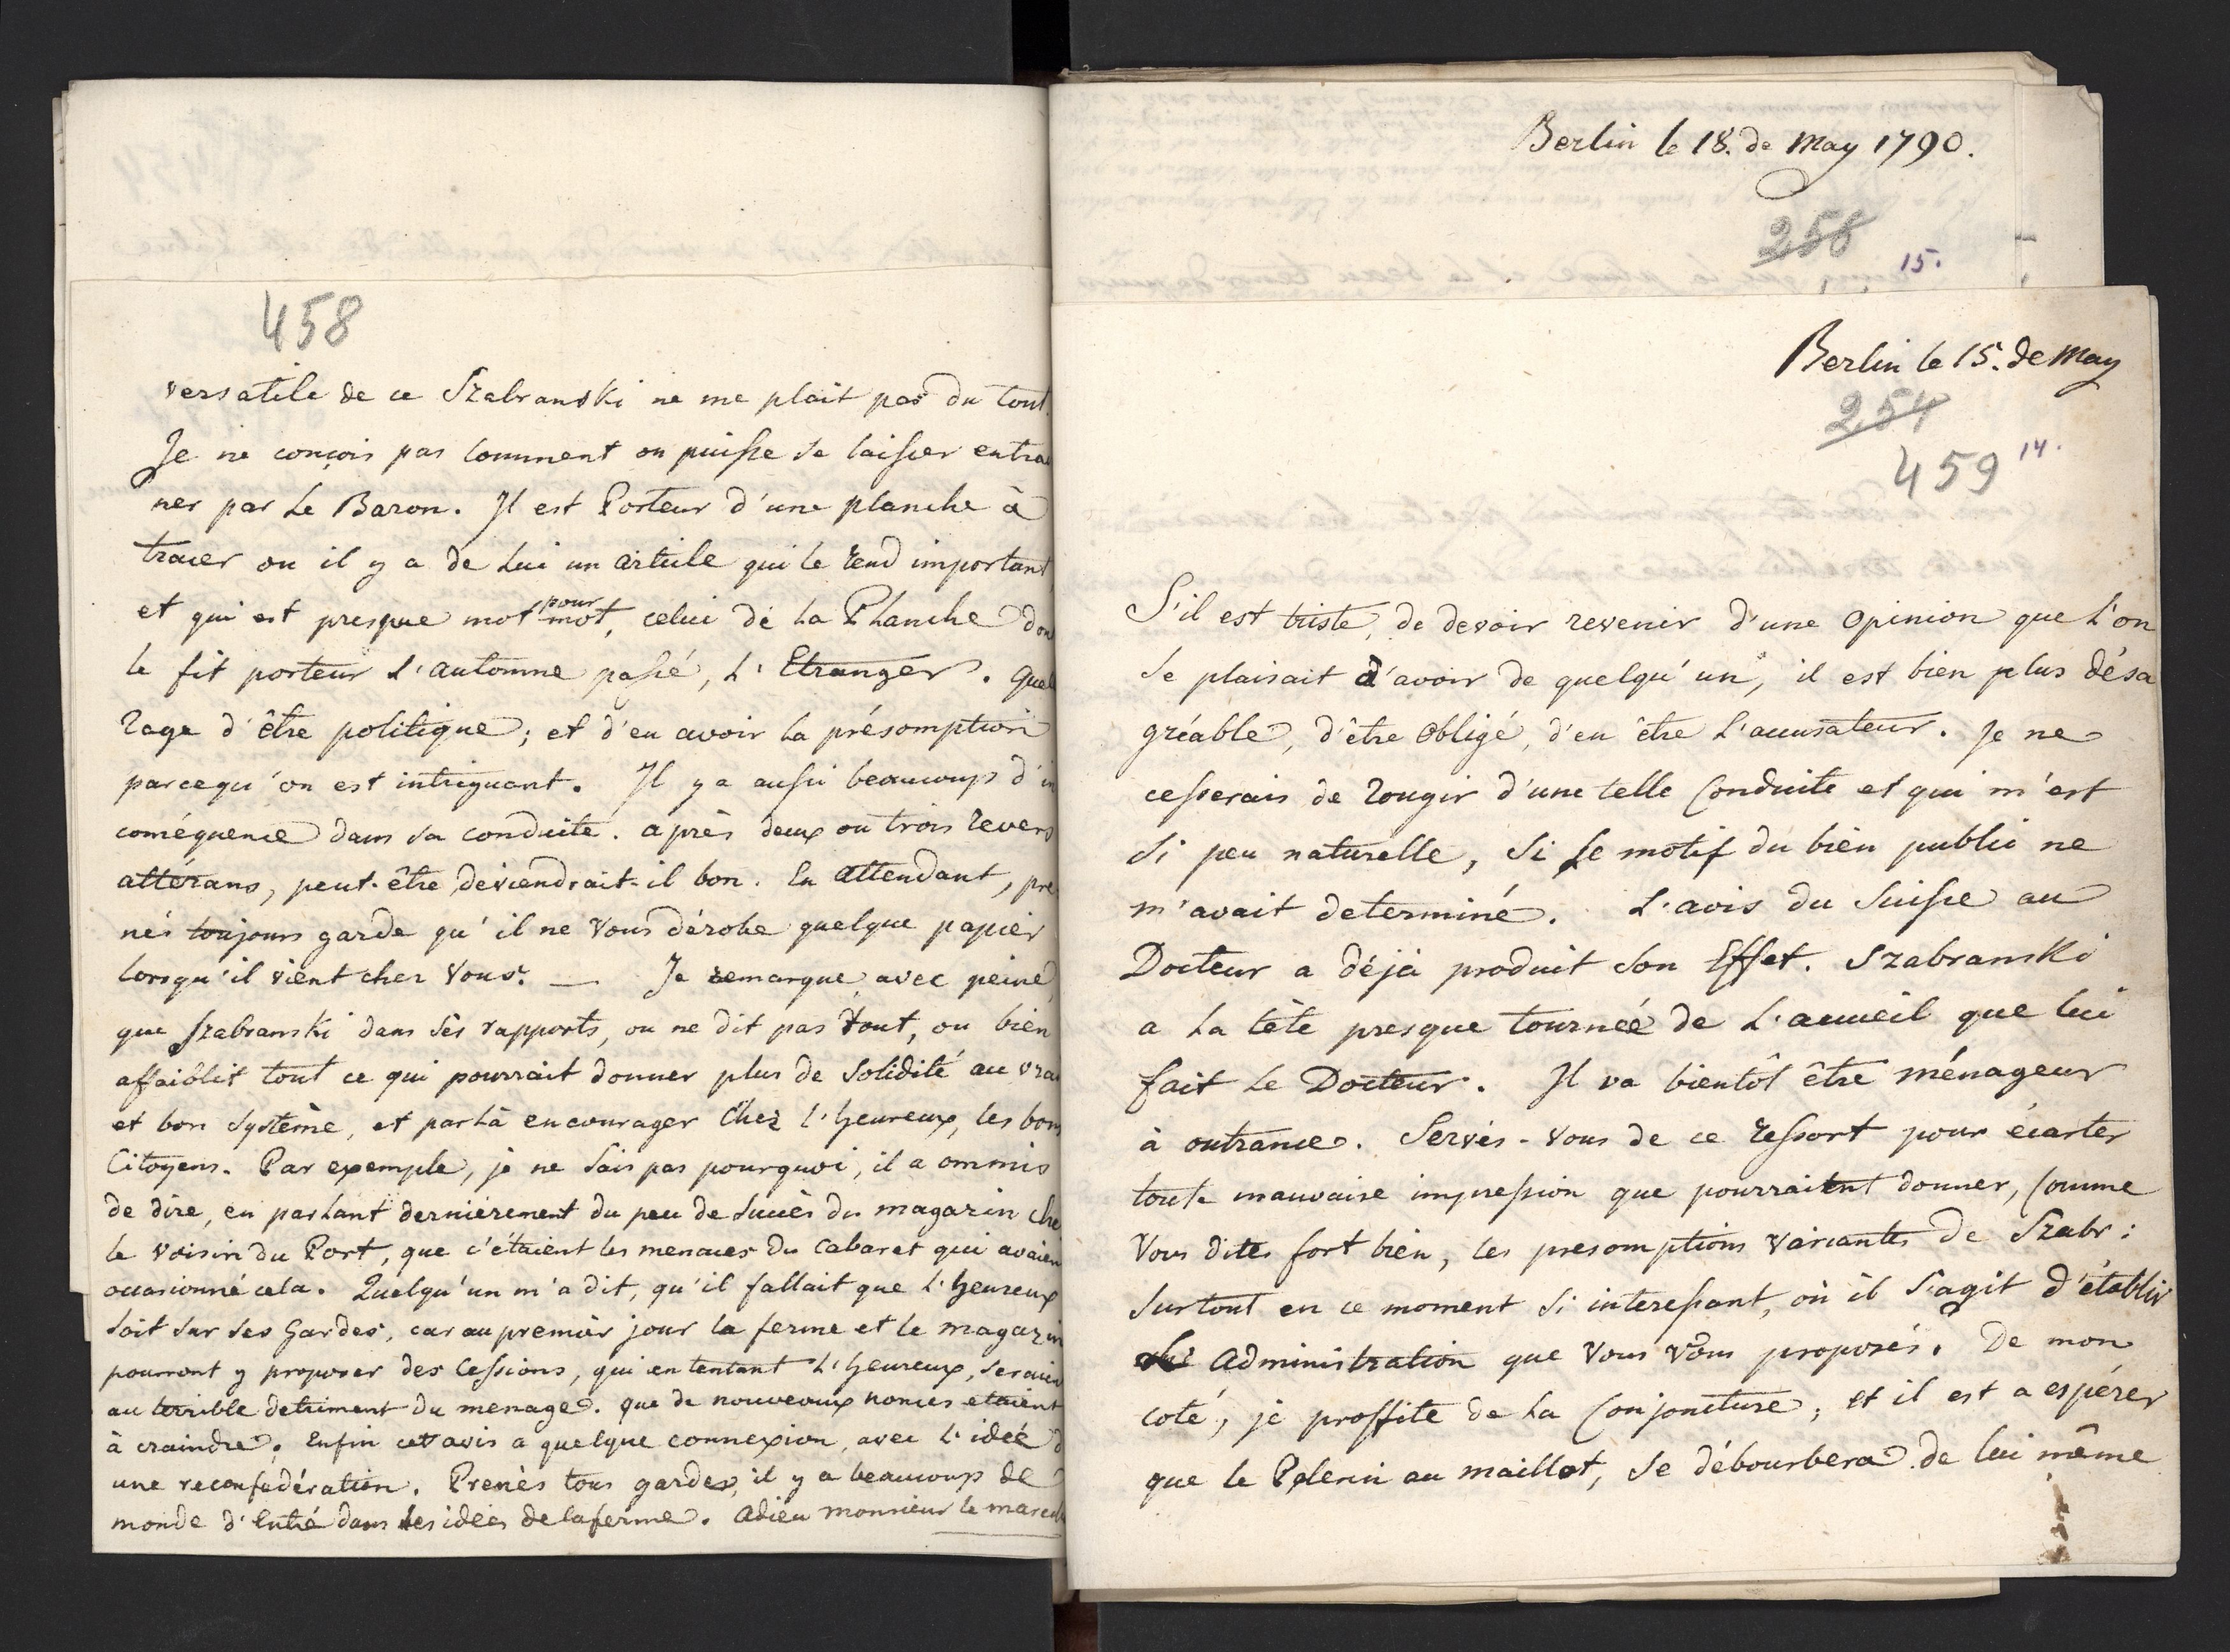 458
versatile de ce Szabranski ne me plait pas du tout.
Je ne conçois pas comment on puisse se laisser entrai
ner par le Baron. Il est Porteur d'une planche à
tracer ou il y a de lui un article qui le rend important,
et qui est presque mot pour mot, celui de la Planche don
le fit porteur l'automne passé, l'Etranger. Quel
rage d'être politique; et d'en avoir la présomption
parcequ'on est intriguant. Il y a aussi beaucoup d'in
conséquence dans sa conduite. après deux ou trois revers
attérans, peut-être deviendrait-il bon. En attendant, pre
nés toujours garde qu'il ne vous dérobe quelque papier
lorsqu'il vient chez vous. — Je remarque avec peine,
que Szabranski dans sès rapports, ou ne dit pas tout, ou bien
affaiblit tout ce qui pourrait donner plus de solidité au vrai
et bon système, et par là encourager chez l'heureux, les bons
Citoyens. Par exemple, je ne sais pas pourquoi, il a ommis
de dire, en parlant dernièrement du peu de succès du magazin che
le voisin du Port, que c'étaient les menaces du cabaret qui avaien
occasionné cela. Quelqu'un m'a dit, qu'il fallait que l'heureux
soit sur ses gardes, car au premièr jour la ferme et le magazin
pourront y proposer des Cessions, qui en tentant l'heureux, seraien
au terrible detriment du menage. que de nouveaux nonces etaient
à craindre. Enfin cet avis a quelque connexion, avec l'idée d
une reconfédération. Prenès tous gardes, il y a beaucoup de
monde d'entré dans les idées de la ferme. Adieu monsieur le marech
Berlin le 18. de May 1790.
258
15.
Berlin le 15. de May
254
459 14.
S'il est triste, de devoir revenir d'une opinion que l'on
se plaisait d'avoir de quelqu'un, il est bien plus désa
gréable, d'être obligé, d'en être l'accusateur. Je ne
cesserais de rougir d'une telle Conduite et qui m'est
si peu naturelle, si le motif du bien public ne
m'avait determiné. L'avis du Suisse au
Docteur a déjà produit son Effet. Szabranski
a la tête presque tournée de l'accueil que lui
fait le Docteur. Il va bientôt être ménageur
à outrance. Servés-vous de ce ressort pour écarter
toute mauvaise impression que pourraient donner, Comme
vous dites fort bien, les presomptions variantes de Szabr:
surtout en ce moment si interessant, où il s'agit d'établir
Administration que vous vous proposés. De mon
coté, je proffite de la Conjoncture, et il est a espérer
que le Pelerin au maillot, se débourbera de lui même